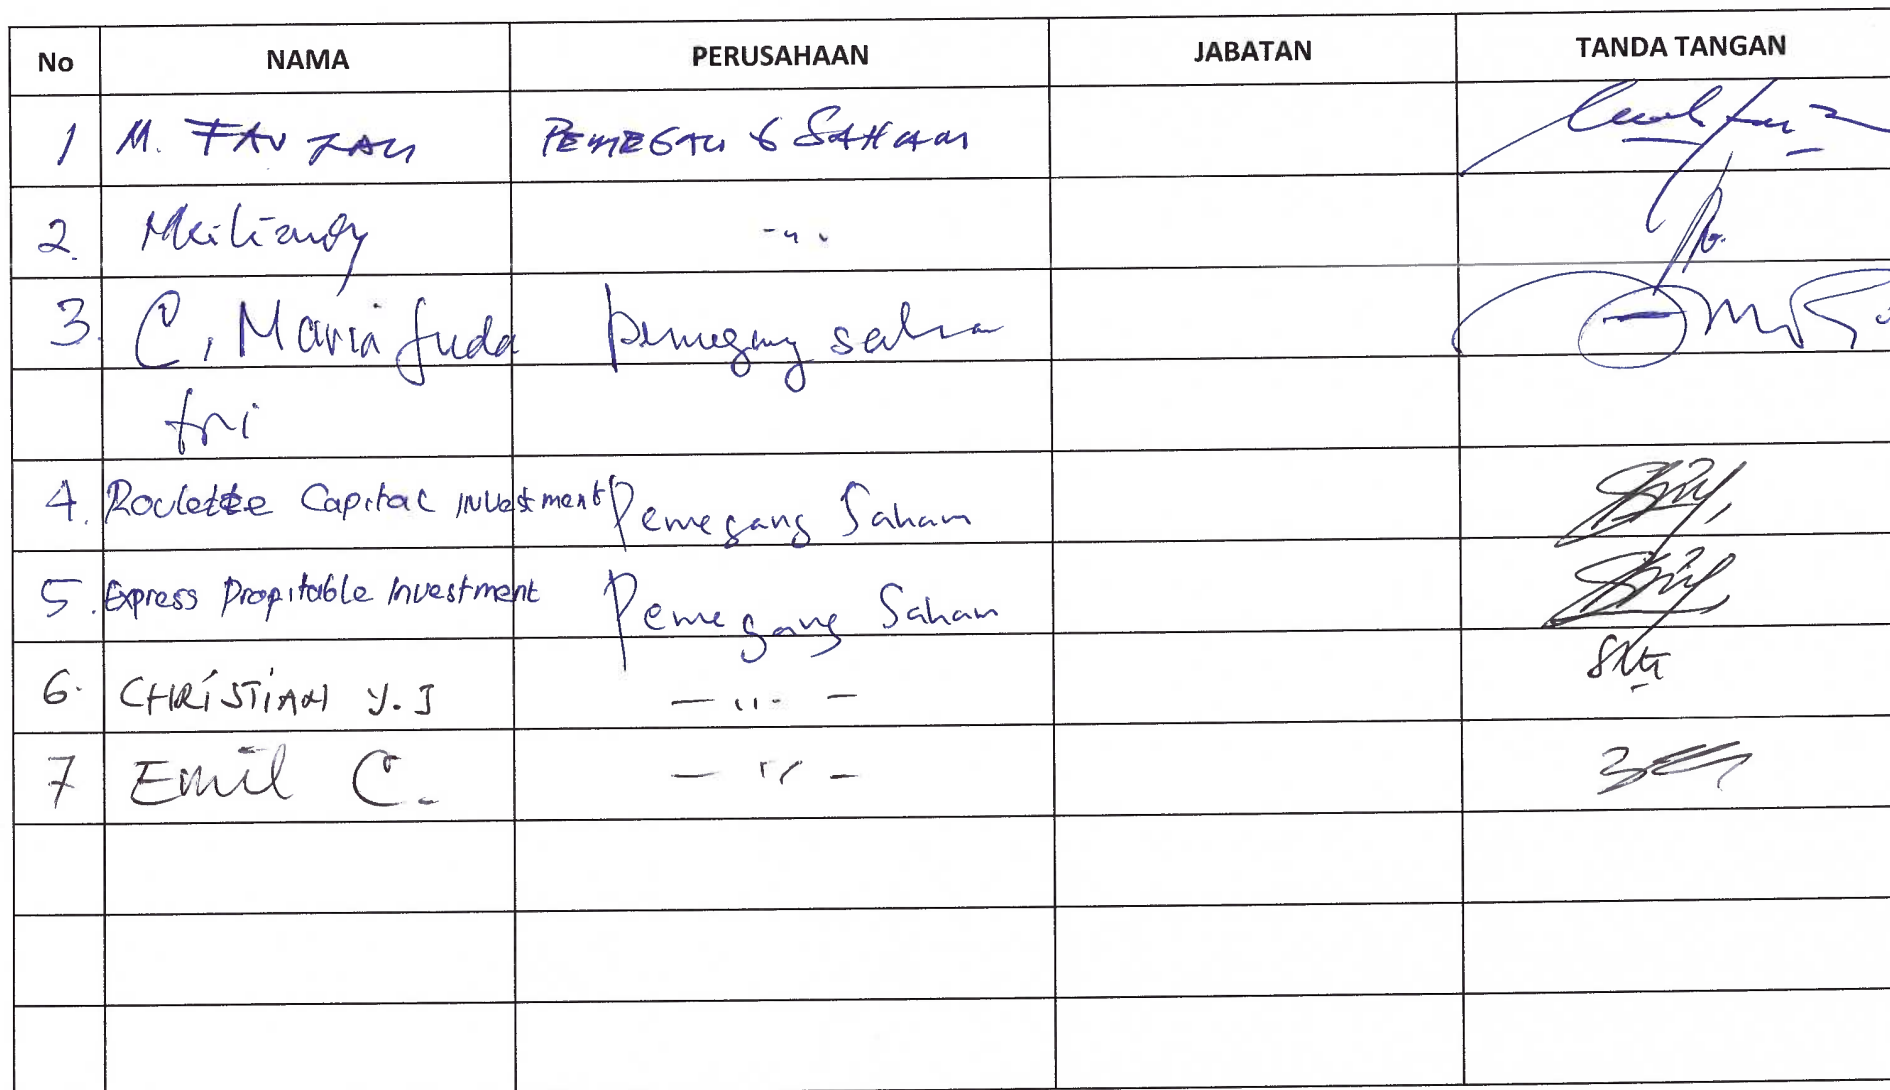 No NAMA PERUSAHAAN JABATAN TANDA TANGAN
1 M. FAUZAN PEMEGANG SAHAM
2. Meiliandy - " -
3. C, Maria
pemegang saham
tri
4. Roulette Capital Investment Pemegang Saham
5. Express Propitable Investment Pemegang Saham
6. CHRISTIAN Y.J — " —
7 Emil C. — " —